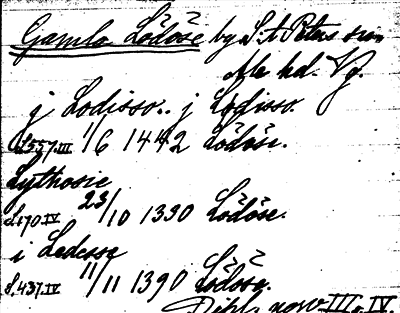 Gamla Lödöse by S:t Peters s:n
Ale hd. Vg.
j Lodisso.. j Lodisso.
d.557.III 1/6 1442 Lödöse.
Lythosie
d.170.IV 23/10 1390 Lödöse.
i Ledesse
S.437.IV 11/11 1390 Lödöse.
Dipl. nov. III o. IV.